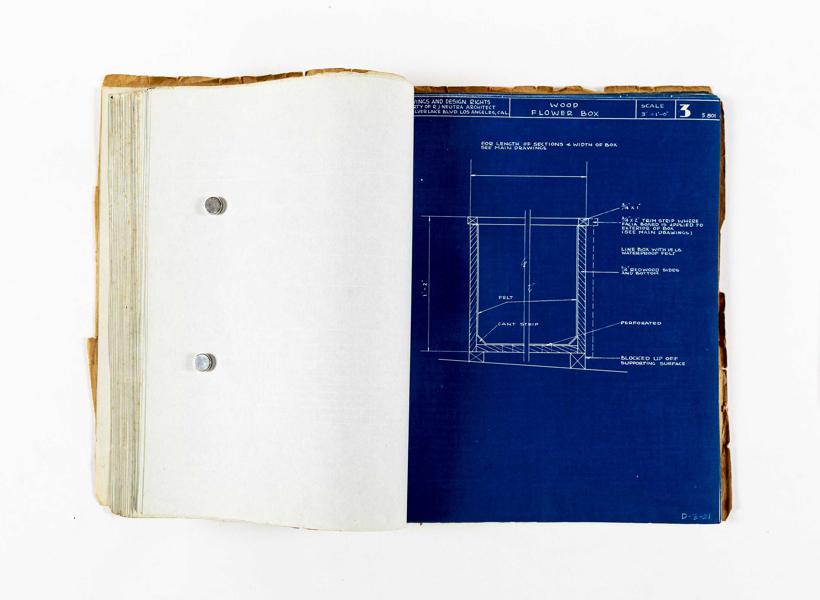 INGS AND DESIGN RIGHTS
RTY OF R.J. NEUTRA ARCHITECT
LVER LAKE BLVD. LOS ANGELES, CAL.
WOOD
FLOWER BOX
SCALE
3" = 1'-0"
3
S.801
FOR LENGTH OF SECTIONS & WIDTH OF BOX
SEE MAIN DRAWINGS
TRIM STRIP WHERE
FACIA BOARD IS APPLIED TO
EXTERIOR OF BOX
(SEE MAIN DRAWINGS)
LINE BOX WITH 15 LB.
WATERPROOF FELT
REDWOOD SIDES
AND BOTTOM
1'-2"
FELT
CANT STRIP
PERFORATED
BLOCKED UP OFF
SUPPORTING SURFACE